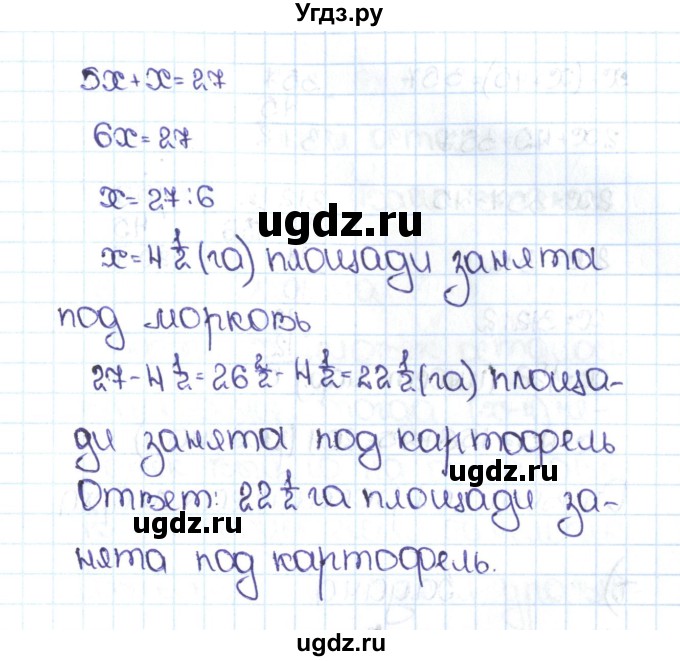 Угдз.ру
5x + x = 27
6x = 27
x = 27 : 6
ugdz.ru
x = 4 1/2 (га) площади занята
под морковь
27 - 4 1/2 = 26 2/2 - 4 1/2 = 22 1/2 (га) площа-
ди занята под картофель
ugdz.ru
Ответ: 22 1/2 га площади за-
ugdz.ru
нята под картофель.
ugdz.ru